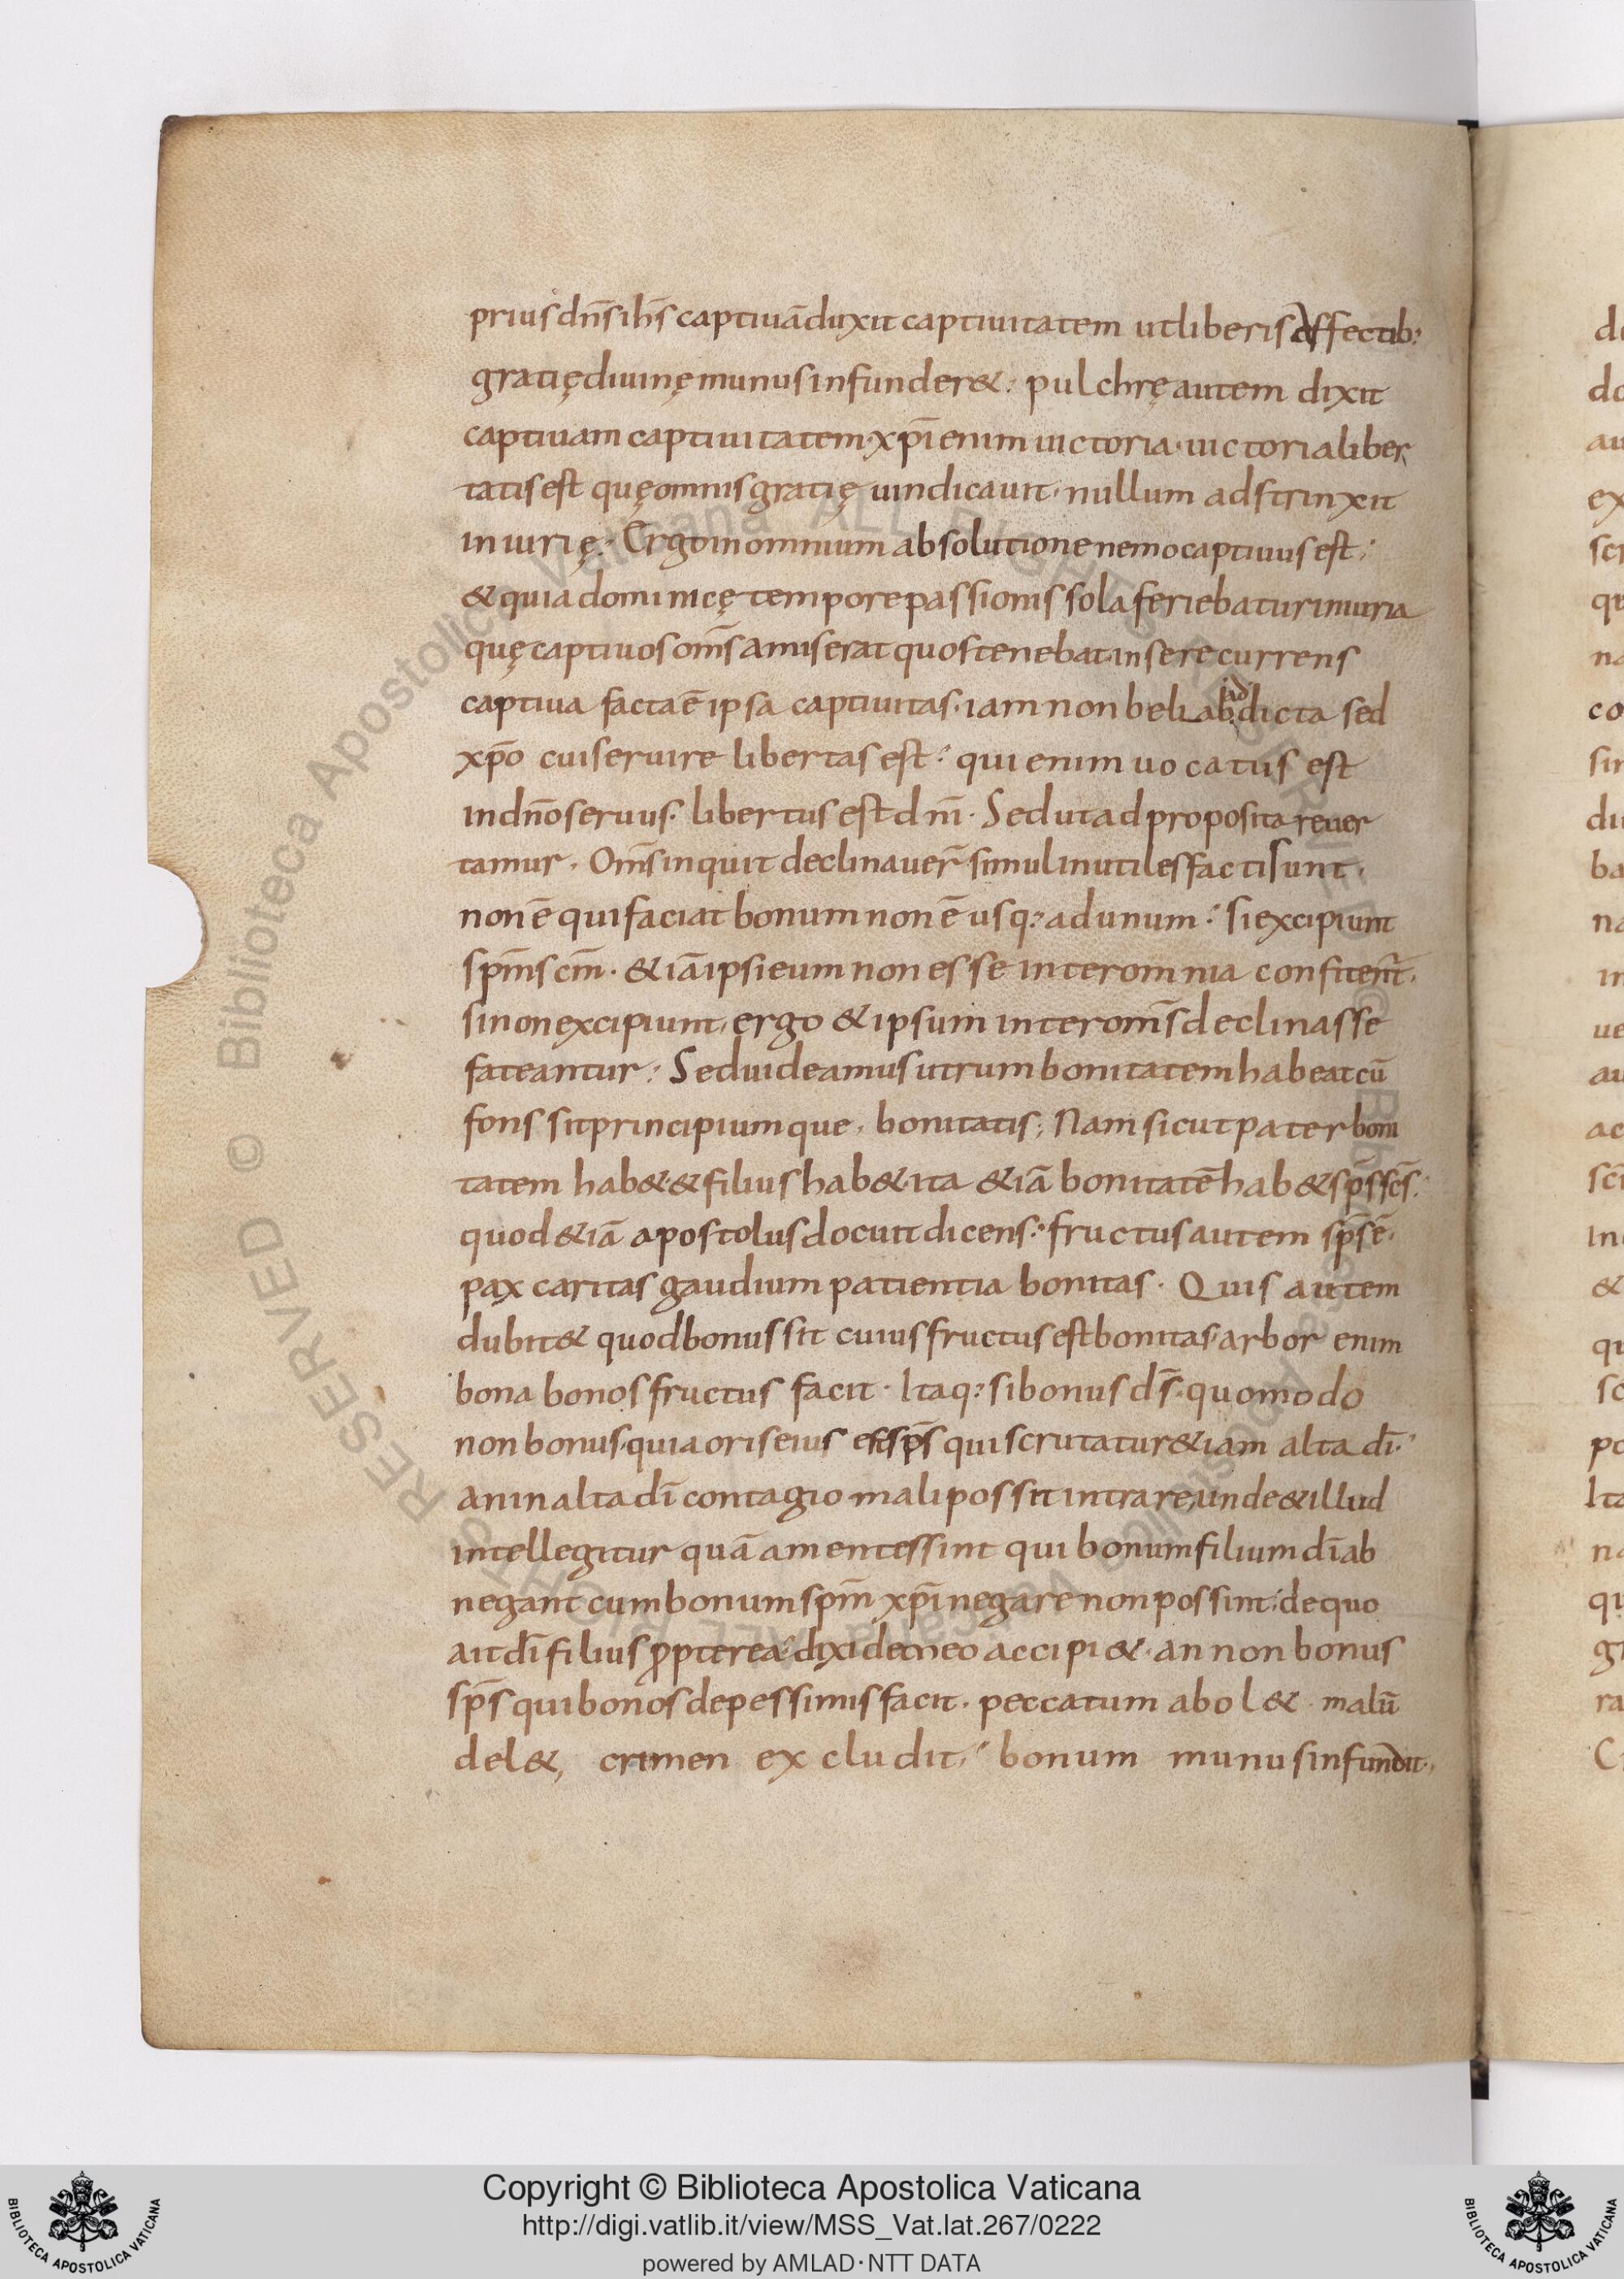 prius dn̄s ih̄s captiuā duxit captiuitatem ut liberis affectib:
gratię diuinę munus infunder&. pulchrę autem dixit
captiuam captiuitatem· xp̄i enim uictoria· uictoria liber
tatis est quę omnis gratię uindicauit· nullum adstrinxit
iniurię. Ergo in omnium absolutione nemo captiuus est.
& quia dominicę tempore passionis sola feriebatur iniuria
quę captiuos om̄s amiserat quos tenebat in se recurrens
captiua facta ē ipsa captiuitas· iam non beliab addicta sed
xp̄o cui seruire libertas est. qui enim uocatus est
in dn̄o seruus· libertus est dn̄i· Sed ut ad proposita reuer
tamur. Om̄s inquit declinauer̄ simul inutiles facti sunt·
non ē qui faciat bonum non ē usq: ad unum. si excipiunt
sp̄m sc̄m· &iā ipsi eum non esse inter omnia confitent̄·
si non excipiunt, ergo & ipsum inter om̄s declinasse
fateantur. Sed uideamus utrum bonitatem habeat cū
fons sit principiumque, bonitatis; Nam sicut pater boni
tatem hab&· & filius hab&· ita &iā bonitatē hab& sp̄s sc̄s.
quod &iā apostolus docuit dicens. fructus autem sp̄s ē·
pax caritas gaudium patientia bonitas· Quis autem
dubit& quod bonus sit cuius fructus est bonitas· arbor enim
bona bonos fructus facit· Itaq: si bonus dr̄· quomodo
non bonus· quia oris eius est sp̄s qui scrutatur &iam alta dī.
an in alta dī contagio mali possit intrare, unde & illud
intellegitur quā amentes sint qui bonum filium dī ab
negant cum bonum sp̄m xp̄i negare non possint· de quo
ait dī filius ꝓpterea dixi de meo accipi&· an non bonus
sp̄s qui bonos de pessimis facit· peccatum abol& malū
del&, crimen excludit, bonum munus infundit.
Copyright © Biblioteca Apostolica Vaticana
http://digi.vatlib.it/view/MSS_Vat.lat.267/0222
powered by AMLAD·NTT DATA